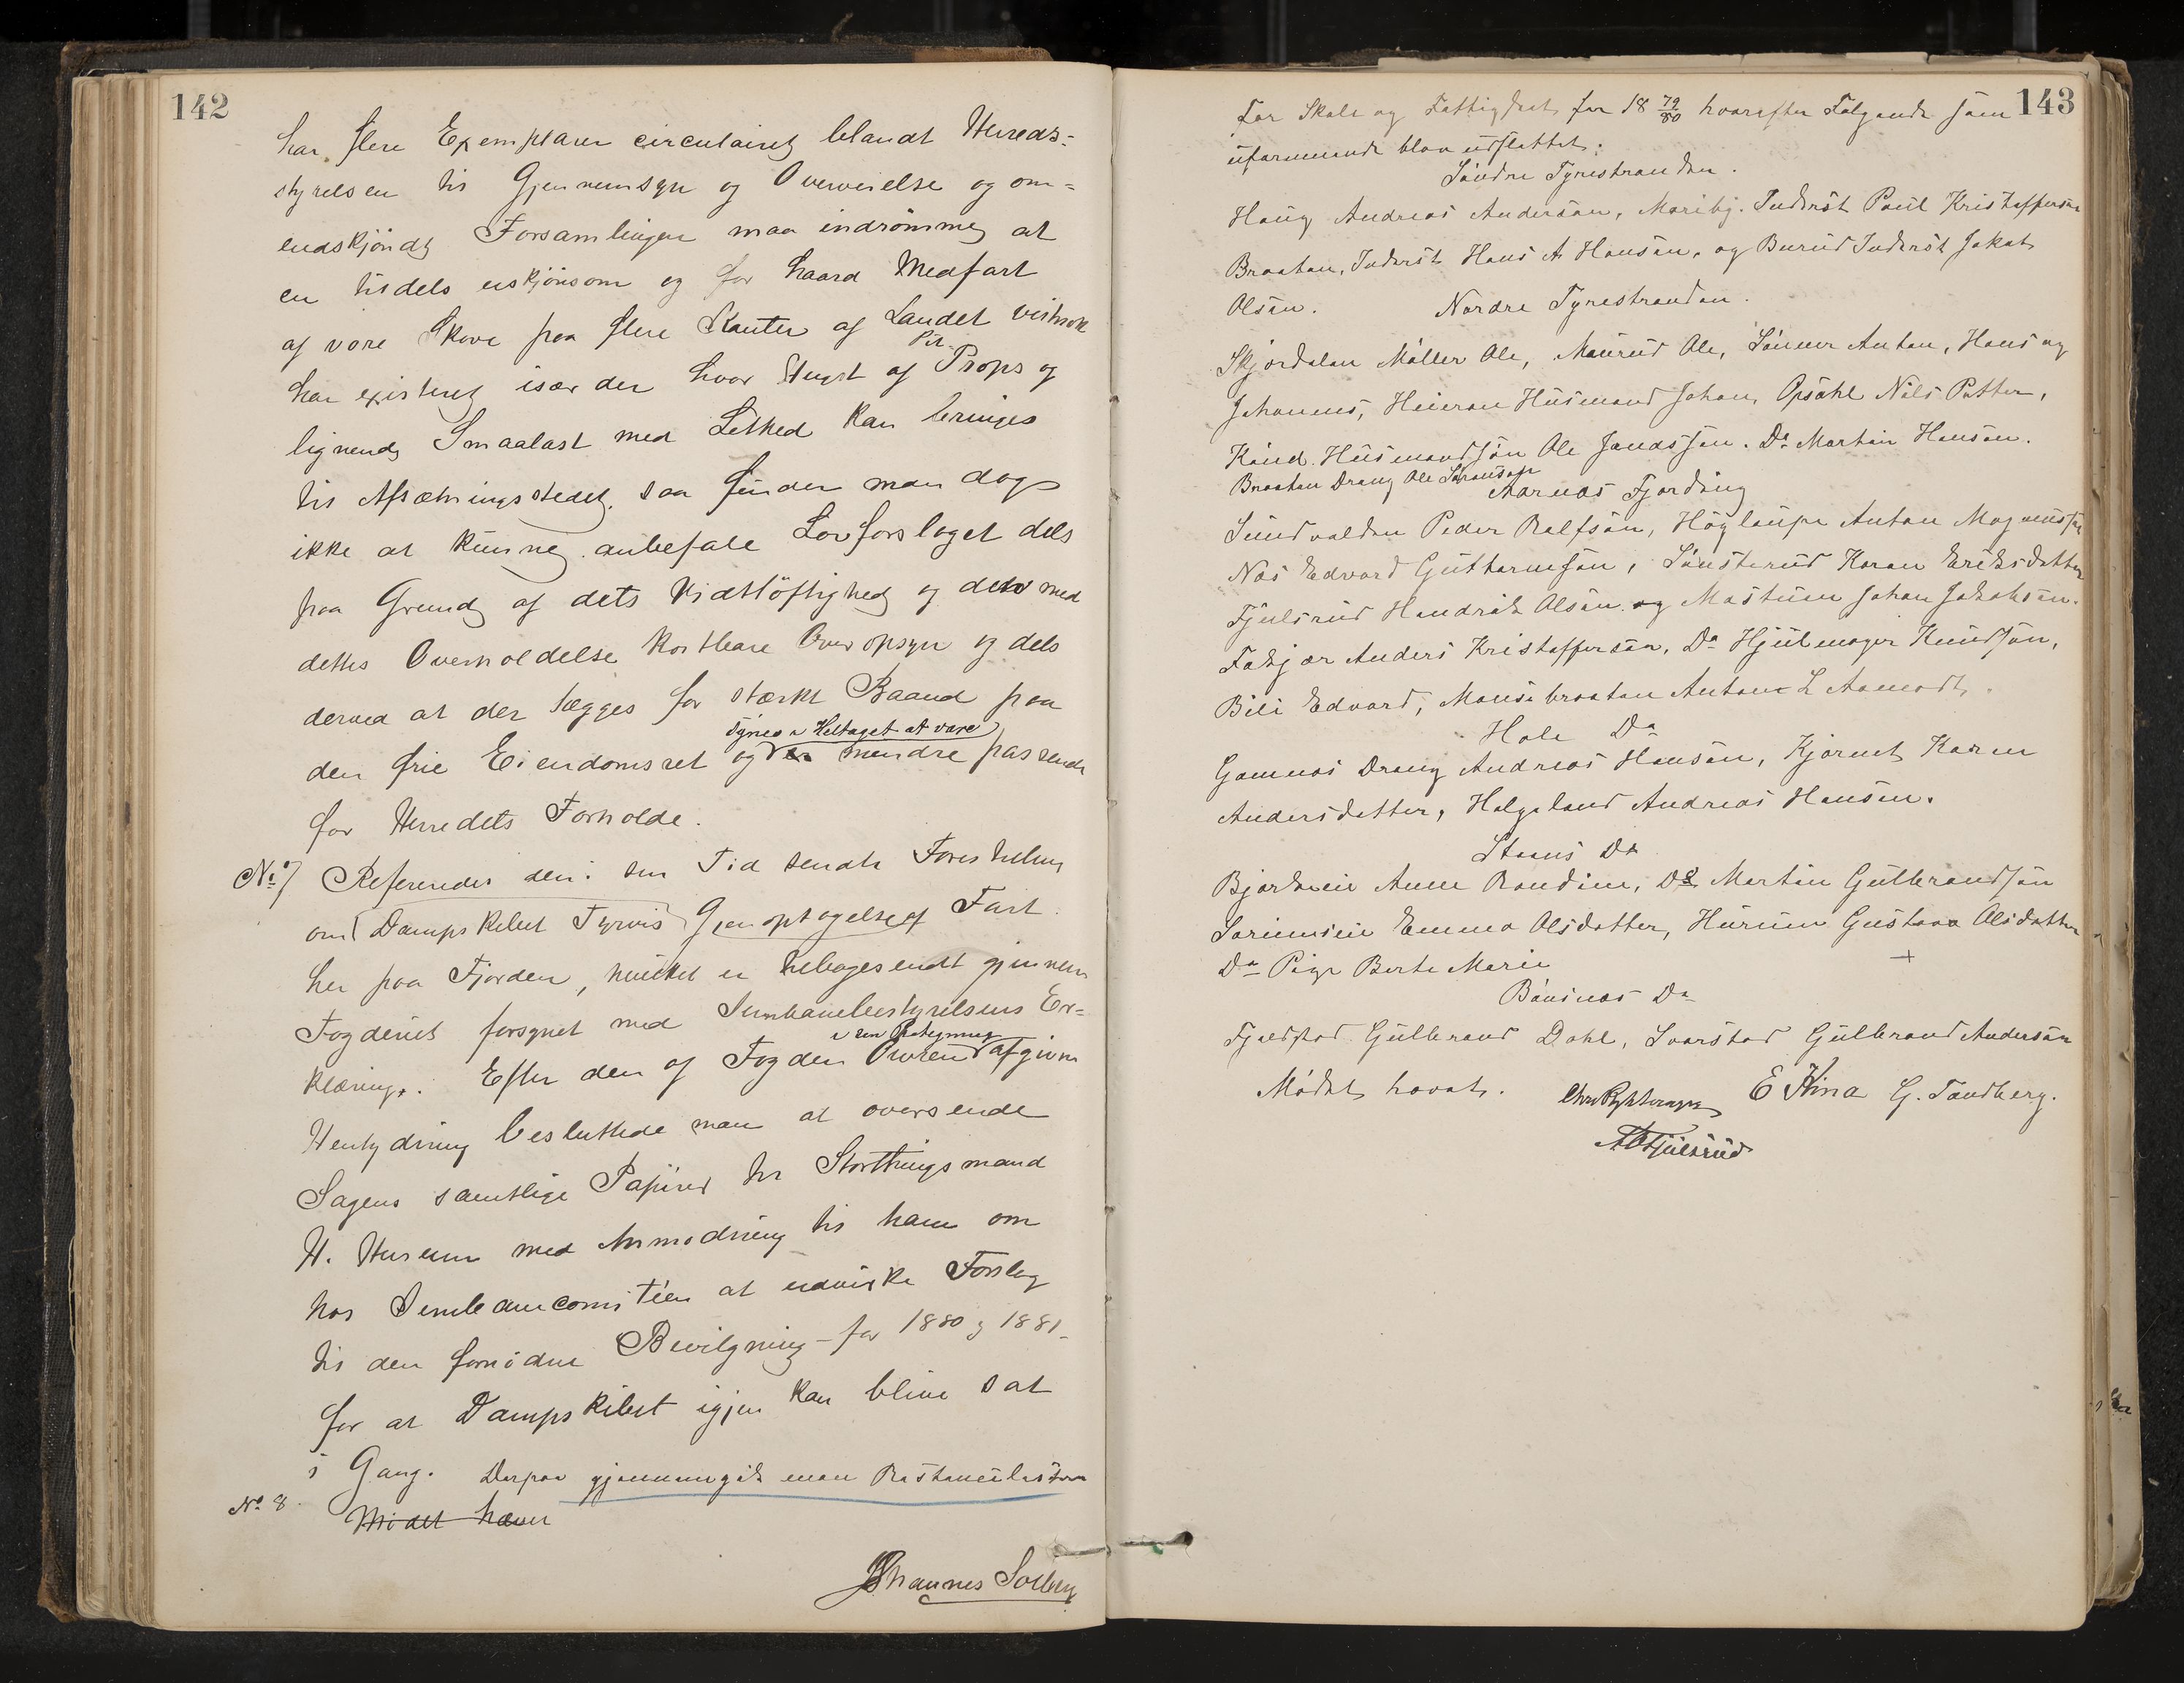 142
har flere Exemplarer circulairet blandt Herreds=
styrelsen til Gjennemsyn og Overveielse og om=
endskjöndt Forsamlingen maa indrömme at
en tildels uskjönsom og for haard Medfart
af vore Skove paa flere Kanter af Landet
har existeret især der hvor Hugst af Props og
lignende Smaalast med Lethed kan bringes
til Afsætningsstedet, saa finder man dog
ikke at kunne anbefale Lovforslaget dels
paa Grund af dets Vidtlöftighed og det ved
dettes Overholdelse kostbare Overopsyn og dels
derved at der lægges for stærkt Baand paa
synes i Heltaget at være
den frie Eiendomsret og er mindre passende
for Herredets Forholde.
No 7 Refereredes den i sin Tid sendte Forestilling
om Dampskibet Tyrvis Gjenoptagelse af Fart
her paa Fjorden, hvilket er tilbagesendt gjennem
Fogderiet forsynet med Jernbanebestyrelsens Er=
i sin Paategning
klæring. Efter den af Fogden afgivne
Hentydning besluttede man at oversende
Sagens samtlige Papirer til Storthingsmand
H. Husum med Anmodning til ham om
hos Jernbanecomitéen at udvirke Forslag
til den fornödne Bevilgning - for 1880 og 1881 -
for at Dampskibet igjen kan blive sat
i Gang. Derpaa gjennemgik man Restancelisten
No 8.
Mödet hæver
Johannes Solberg
143
for Skole og Fattigdrets for 18 79/80 hvorefter Fölgende som
uformuende blev udslettet:
Söndre Tyrestranden.
Haug Andreas Andersön, Moribj. Inderst Paul Kristoffersön
Braaten, Inderst Hans A Hansön, og Burud Inderst Jakob
Olsön. Nordre Tyrestranden.
Skjærdalen Möller Ole, Maurud Ole, Sönner Anton, Hans og
Johannes, Heieren Husmand Johan, Opsahl Nils Petter,
Husmandssön Ole Jonassön. Do Martin Hansön.
Braaten Dreng Ole
Aarnæs Fjerding
Sundvolden Peder Rolfsön, Höglaupe Anton Magnussön
Næs Edvard Guttormsön, Sönsterud Karen Eriksdatter
Fjulsrud Hendrik Olsön og Mastum Johan Jakobsön.
Fekjær Anders Kristoffersön, Do Hjulmager Knudsön,
Bili Edvard, Monsebraaten Anton L Aamodt.
Hole Do
Gomnæs Dreng Andreas Hansön, Kjærnet Karen
Andersdatter, Helgeland Andreas Hansön.
Steens Do
Bjerkeeie Anne Randine, Do Martin Gulbrandsön
Emma Olsdatter, Hurum Gustava Olsdatter
Do Pige Berte Marie
Bönsnæs Do
Fjeldstad Gulbrand Dahl, Svarstad Gulbrand Andersön
Mödet hævet. E Hina G. Tandberg.
A O Fjulsrud